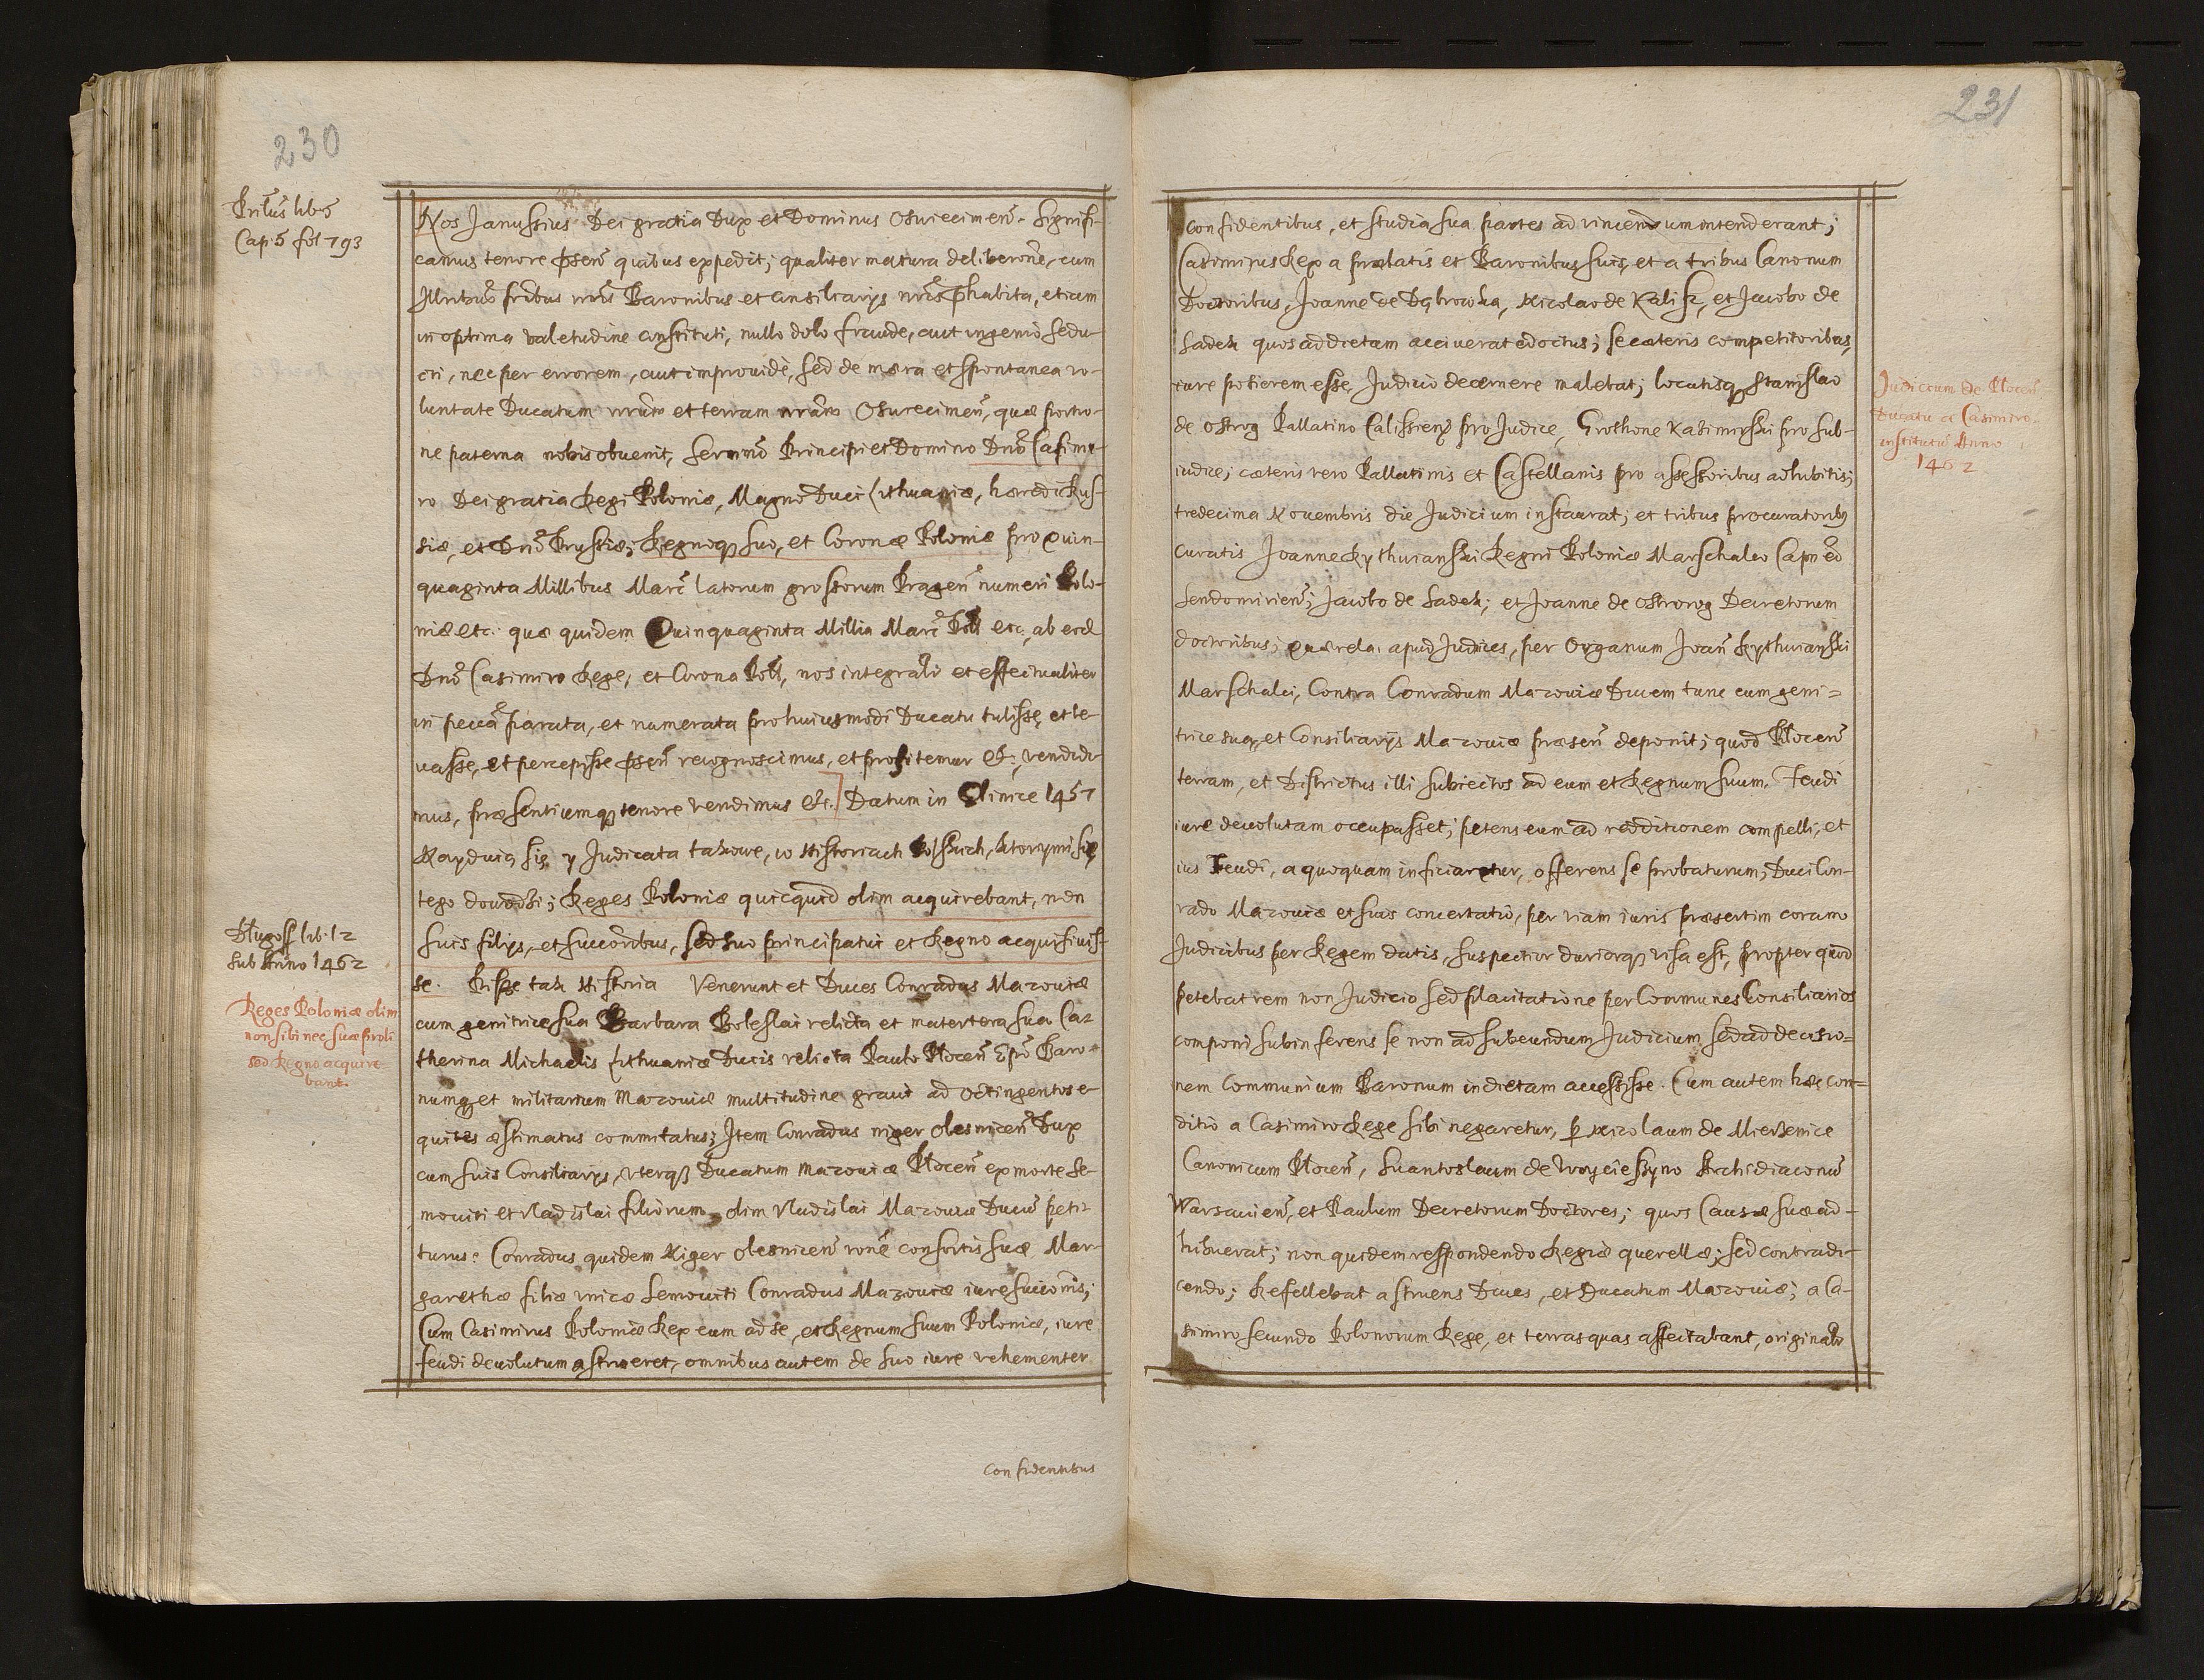 230
Priłus lib 5
Cap 5 fol 793
Nos Janussius Dei gratia Dux et Dominus Osuiecimen̄. Signifi-
camus tenore p̄sen̄ quibus expedit; qualiter matura deliberōne, cum
Illribus frībus nr̄is Baronibus et Consiliarÿs nr̄is p̄habita, etiam
in optima valetudine constituti, nullo dolo fraude, aut ingenio sedu-
cti, nec per errorem, aut improuidè, sed de mera et spontanea vo-
luntate Ducatum nr̄um et terram nr̄am Osuiecimen̄, quæ portio-
ne paterna nobis obuenit, Serenmō Principi et Domino Dnō Casimi-
ro Dei gratia Regi Poloniæ, Magno Duci Lithuaniæ, hæredi Rus-
siæ, et Dnō Prussiæ; Regnoq; suo, et Coronæ Poloniæ pro Quin-
quaginta Millibus Marc̄ latorum grossorum Pragen̄ numeri Polo-
niæ etc: quæ quidem Quinquaginta Millia Marc̄ Pol̄l etc, ab eod̄
Dnō Casimiro Rege, et Corona Pol̄l, nos integralr̄ et effectualiter
in pecūa parata, et numerata pro huiusmodi Ducatu tulisse, et le-
uasse, et percepisse p̄sen̄ recognoscimus, et profitemur etc:, vendidi-
mus, præsentiumq; tenore vendimus etc:] Datum in Glinice 1457
Nayduią się y Judicata takowe, w Historiach Polskich, ktorymi się
tego dowodzi; Reges Poloniæ quicquid olim acquirebant, non
suis filÿs, et succorībus, sed suo principatui et Regno acquisiuis-
se. Pisze tak Historia Venerunt et Duces Conradus Mazouiæ
cum genitrice sua Barbara Boleslai relicta et matertera sua Ca-
therina Michaelis Lithuaniæ Ducis relicta Paulo Plocen̄ Epō Baro-
numq; et militarium Mazouiæ multitudine graui ad octingentos e-
quites æstimatus commitatus; Item Conradus niger Olesnicen̄ Dux
cum suis Consiliarÿs, vterq; Ducatum Mazouiæ Plocen̄ ex morte Se-
mouiti et Vladislai filiorum olim Vladislai Mazouiæ Ducū peti-
turus: Conradus quidem Niger Olesnicen̄ ronē consortis suæ Mar-
garethæ filiæ vnicæ Semouiti Conradus Mazouiæ iure succonis;
Cum Casimirus Poloniæ Rex eum ad se, et Regnum suum Poloniæ, iure
feudi deuolutum astrueret, omnibus autem de suo iure vehementer
Confidentibus
Długoss lib. 12
sub Anno 1462
Reges Poloniæ olim
non sibi nec suæ proli
sed Regno acquire-
bant.
231
confidentibus, et studia sua partes ad vincendum intenderant;
Casimirus Rex a prælatis et Baronibus suis, et a tribus Canonum
Doctoribus, Joanne de Dąbrowka, Nicolao de Kalisz, et Jacobo de
Sadek quos ad dietam acciuerat edoctus; se cæteris competitoribus,
iure potiorem esse, Judicio decernere malebat; locatisq; Stanislao
de Ostrog Pallatino Calissien̄ pro Judice, Grothone Kazimirski pro Sub-
iudice; cæteris vero Pallatinis et Castellanis pro assessoribus adhibitis;
tredecima Nouembris die Judicium instaurat; et tribus procuratoribus
curatis Joanne Rythwianski Regni Poloniæ Marschalco Capn̄eō
Sendomirien̄; Jacobo de Sadek; et Joanne de Ostrorog Decretorum
doctoribus; quærela apud Judices, per Organum Joan̄ Rythwianski
Marschalci, Contra Conradum Mazouiæ Ducem tunc cum geni=
trice sua, et Consiliarÿs Mazouiæ præsen̄ deponit; quod Plocen̄
terram, et Districtus illi subiectos ad eum et Regnum suum. Feudi
iure deuolutam occupasset; petens eum ad redditionem compelli, et
ius Feudi, a quoquam inficiaretur, offerens se probaturum, Duci Con-
rado Mazouiæ et suis concertatio, per viam iuris præsertim coram
Judicibus per Regem datis, suspectior duriorq; visa est, propter quod
petebat rem non Judicio sed placitatione per Communes Consiliarios
componi subinferens se non ad subeundum Judicium sed ad decisio=
nem Communium Baronum in dietam accessisse. Cum autem hæc con=
ditio a Casimiro Rege sibi negaretur, p̱ Nicolaum de Mierzenice
Canonicum Plocen̄, Suantoslaum de Woycieszyno Archidiaconū
Warsauien̄, et Paulum Decretorum Doctores; quos Causæ suæ ad-
hibuerat; non quidem respondendo Regiæ querellæ; sed contradi-
cendo; Refellebat astruens Duces, et Ducatum Mazouiæ; a Ca-
simiro Secundo Polonorum Rege, et terras quas affectabant, originalr̄
Judicium de Plocen̄
Ducatu a Casimiro
institutū Anno
1462